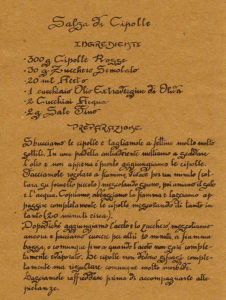 Salsa di Cipolle
INGREDIENTI
·300g Cipolle Rosse
·30g Zucchero Semolato
·20 ml Aceto
·1 cucchiaio Olio Extravergine di Oliva
·2 Cucchiai Acqua
·2g Sale Fino
PREPARAZIONE
Sbucciamo le cipolle e tagliamole a fettine molto molto
sottili. In una padella antiaderente mettiamo a scaldare
l'olio e non appena è pronto aggiungiamo le cipolle.
Facciamole rosolare a fiamma vivace per un minuto (col
tura su fornello piccolo) mescolando spesso, poi uniamo il sale
e l'acqua. Copriamo abbassiamo la fiamma e lasciamo ap
passire completamente le cipolle mescolando di tanto in
tanto (20 minuti circa).
Dopodiché aggiungiamo l'aceto e lo zucchero, mescoliamo
ancora e facciamo cuocere per altri 10 minuti, a fiamma
bassa, o comunque fino a quando l'aceto non sarà comple-
tamente evaporato. Le cipolle non devono essere comple-
tamente ma risultare comunque molto morbide.
Lasciamole raffreddare prima di accompagnarle alle
pietanze.